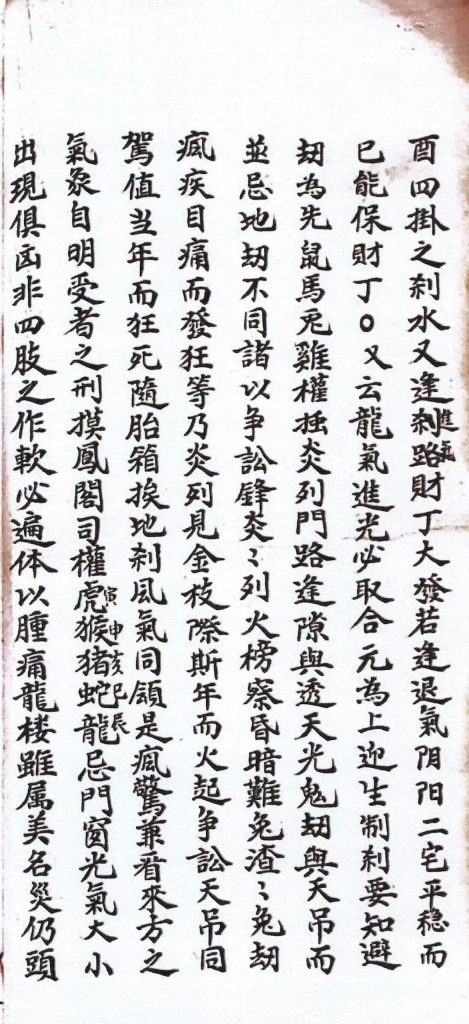 酉四掛之刹水又逢刹路進氣財丁大發若逢退氣阴阳二宅平稳而
已能保財丁〇又云龍氣進光必取合元為上迎生制刹要知避
刼為先鼠馬兎雞權独炎列門路逢隙與透天光鬼刼與天吊而
並忌地刼不同諸以争訟鋒炎〻列火榜察昏暗難兔渣〻兔刼
瘋疾目痛而發狂等乃炎列見金枝際斯年而火起争訟天吊同
駕值当年而狂死隨胎箱挨地刹凨氣同領是瘋驚兼看來方之
氣象自明受者之刑摸鳳閣司權虎寅猴申猪亥蛇巳龍辰忌門窗光氣大小
出現俱凶非四肢之作軟必遍体以腫痛龍楼雖属美名災仍頭